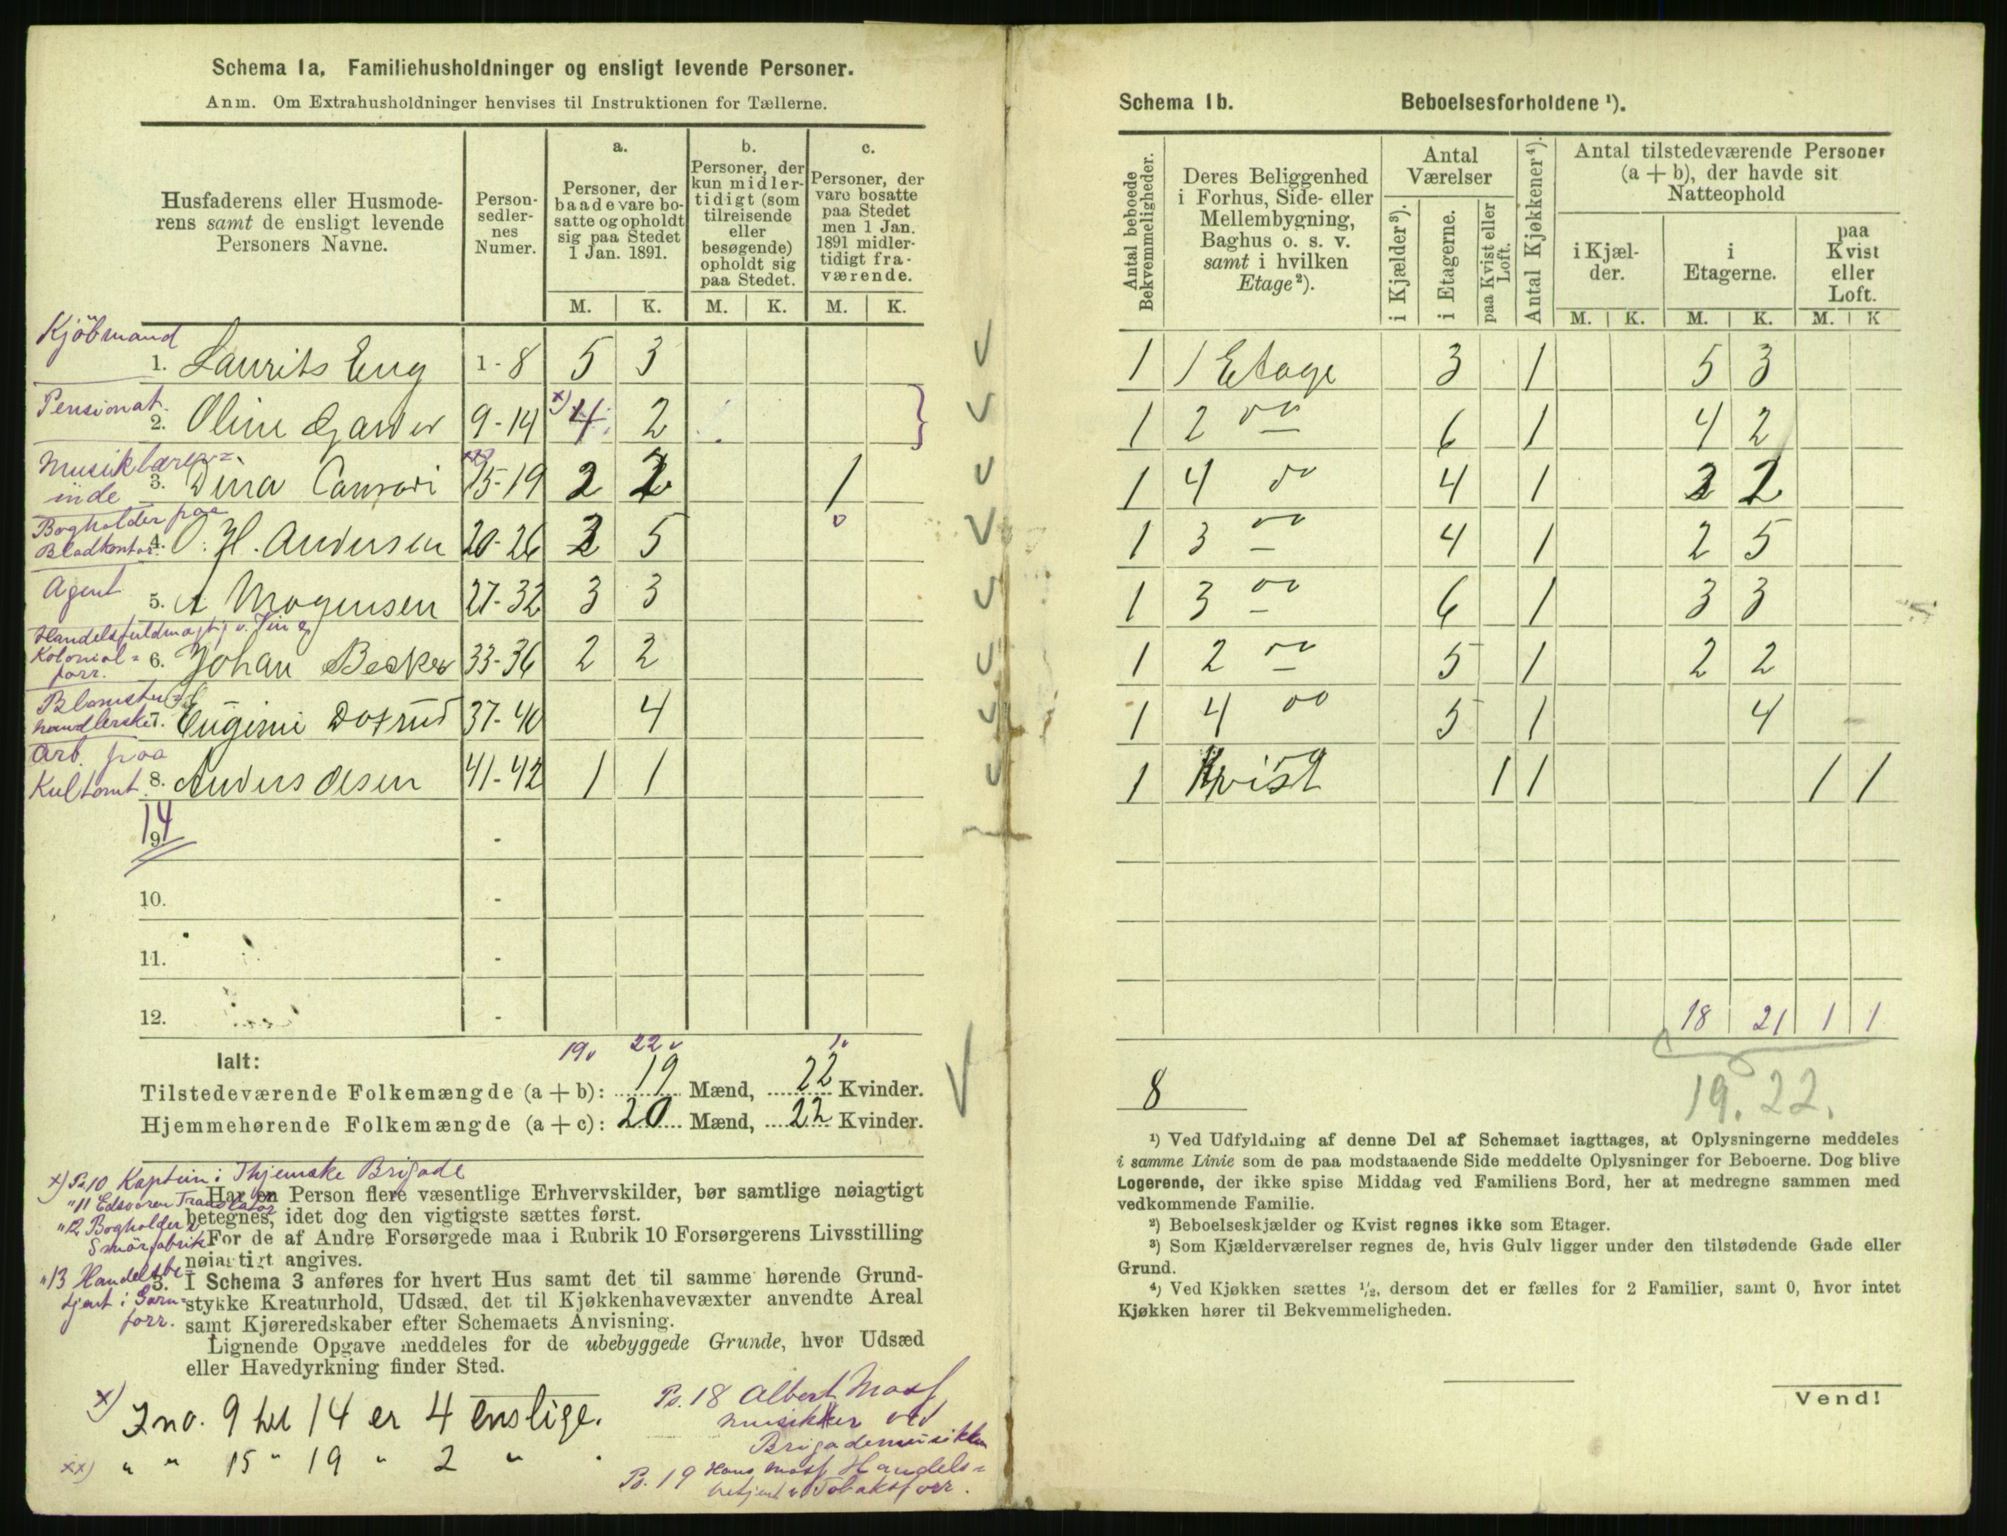 Schema 1a. Familiehusholdninger og ensligt levende Personer.
Anm. Om Extrahusholdninger henvises til Instruktionen for Tællerne.
Husfaderens eller Husmoderens samt de ensligt levende Personers Navne. | Personsedlernes Numer. | a. Personer, der baade vare bosatte og opholdt sig paa Stedet 1 Jan. 1891. | b. Personer, der kun midlertidigt (som tilreisende eller besøgende) opholdt sig paa Stedet. | c. Personer, der vare bosatte paa Stedet men 1 Jan. 1891 midlertidigt fraværende.
M. | K. | M. | K. | M. | K.
Kjöbmand
1. Laurits Eng 1-8 5 3
Pensionat.
2. Oline 9-14 x) 4 2
Musiklærerinde
3. Dina 15-19 2 2 1
Bogholder paa Bladkontor
4. O. H. Andersen 20-26 2 5
Agent
5. A Mogensen 27-32 3 3
Handelsfuldmægtig v. Vin og Kolonialforr.
6. Johan Becker 33-36 2 2
Blomsterhandlerske
7. Eugenie 37-40 4
Arb. paa
8. Anders Olsen 41-42 1 1
14
9. -
10. -
11. -
12. -
19 22 1
Ialt:
Tilstedeværende Folkemængde (a + b): 19 Mænd, 22 Kvinder.
Hjemmehørende Folkemængde (a + c): 20 Mænd, 22 Kvinder.
x) Ps. 10 Kaptein i Thjemske Brigade
Har en Person flere væsentlige Erhvervskilder, bør samtlige nøiagtigt
"11 Edsvoren Translatör
betegnes, idet dog den vigtigste sættes først.
"12 Bogholder v Smörfabrik
For de af Andre Forsørgede maa i Rubrik 10 Forsørgerens Livsstilling
nøiagtigt angives.
"13 Handelsbetjent i Garnforr.
3. I Schema 3 anføres for hvert Hus samt det til samme hørende Grund-
stykke Kreaturhold, Udsæd, det til Kjøkkenhavevæxter anvendte Areal
samt Kjøreredskaber efter Schemaets Anvisning.
Lignende Opgave meddeles for de ubebyggede Grunde, hvor Udsæd
eller Havedyrkning finder Sted.
x) I no. 9 til 14 er 4 enslige.
xx) " " 15 " 19 " 2 " .
Ps. 18 Albert
musikker ved
Brigademusikken
Ps. 19 Hans Handels-
betjent i Tobaksforr.
Schema 1b. Beboelsesforholdene ¹).
Antal beboede Bekvemmeligheder. | Deres Beliggenhed i Forhus, Side- eller Mellembygning, Baghus o. s. v. samt i hvilken Etage ²). | Antal Værelser | i Kjælder ³). | i Etagerne. | paa Kvist eller Loft. | Antal Kjøkkener ⁴). | Antal tilstedeværende Personer (a + b), der havde sit Natteophold | i Kjælder. | i Etagerne. | paa Kvist eller Loft.
M. | K. | M. | K. | M. | K
1 1 Etage 3 1 5 3
1 2 do 6 1 4 2
1 4 do 4 1 2 2
1 3 do 4 1 2 5
1 3 do 6 1 3 3
1 2 do 5 1 2 2
1 4 do 5 1 4
1 Kvist 1 1 1 1
18 21 1 1
8
19. 22.
¹) Ved Udfyldning af denne Del af Schemaet iagttages, at Oplysningerne meddeles
i samme Linie som de paa modstaaende Side meddelte Oplysninger for Beboerne. Dog blive
Logerende, der ikke spise Middag ved Familiens Bord, her at medregne sammen med
vedkommende Familie.
²) Beboelseskjælder og Kvist regnes ikke som Etager.
³) Som Kjælderværelser regnes de, hvis Gulv ligger under den tilstødende Gade eller
Grund.
⁴) Ved Kjøkken sættes ½, dersom det er fælles for 2 Familier, samt 0, hvor intet
Kjøkken hører til Bekvemmeligheden.
Vend!